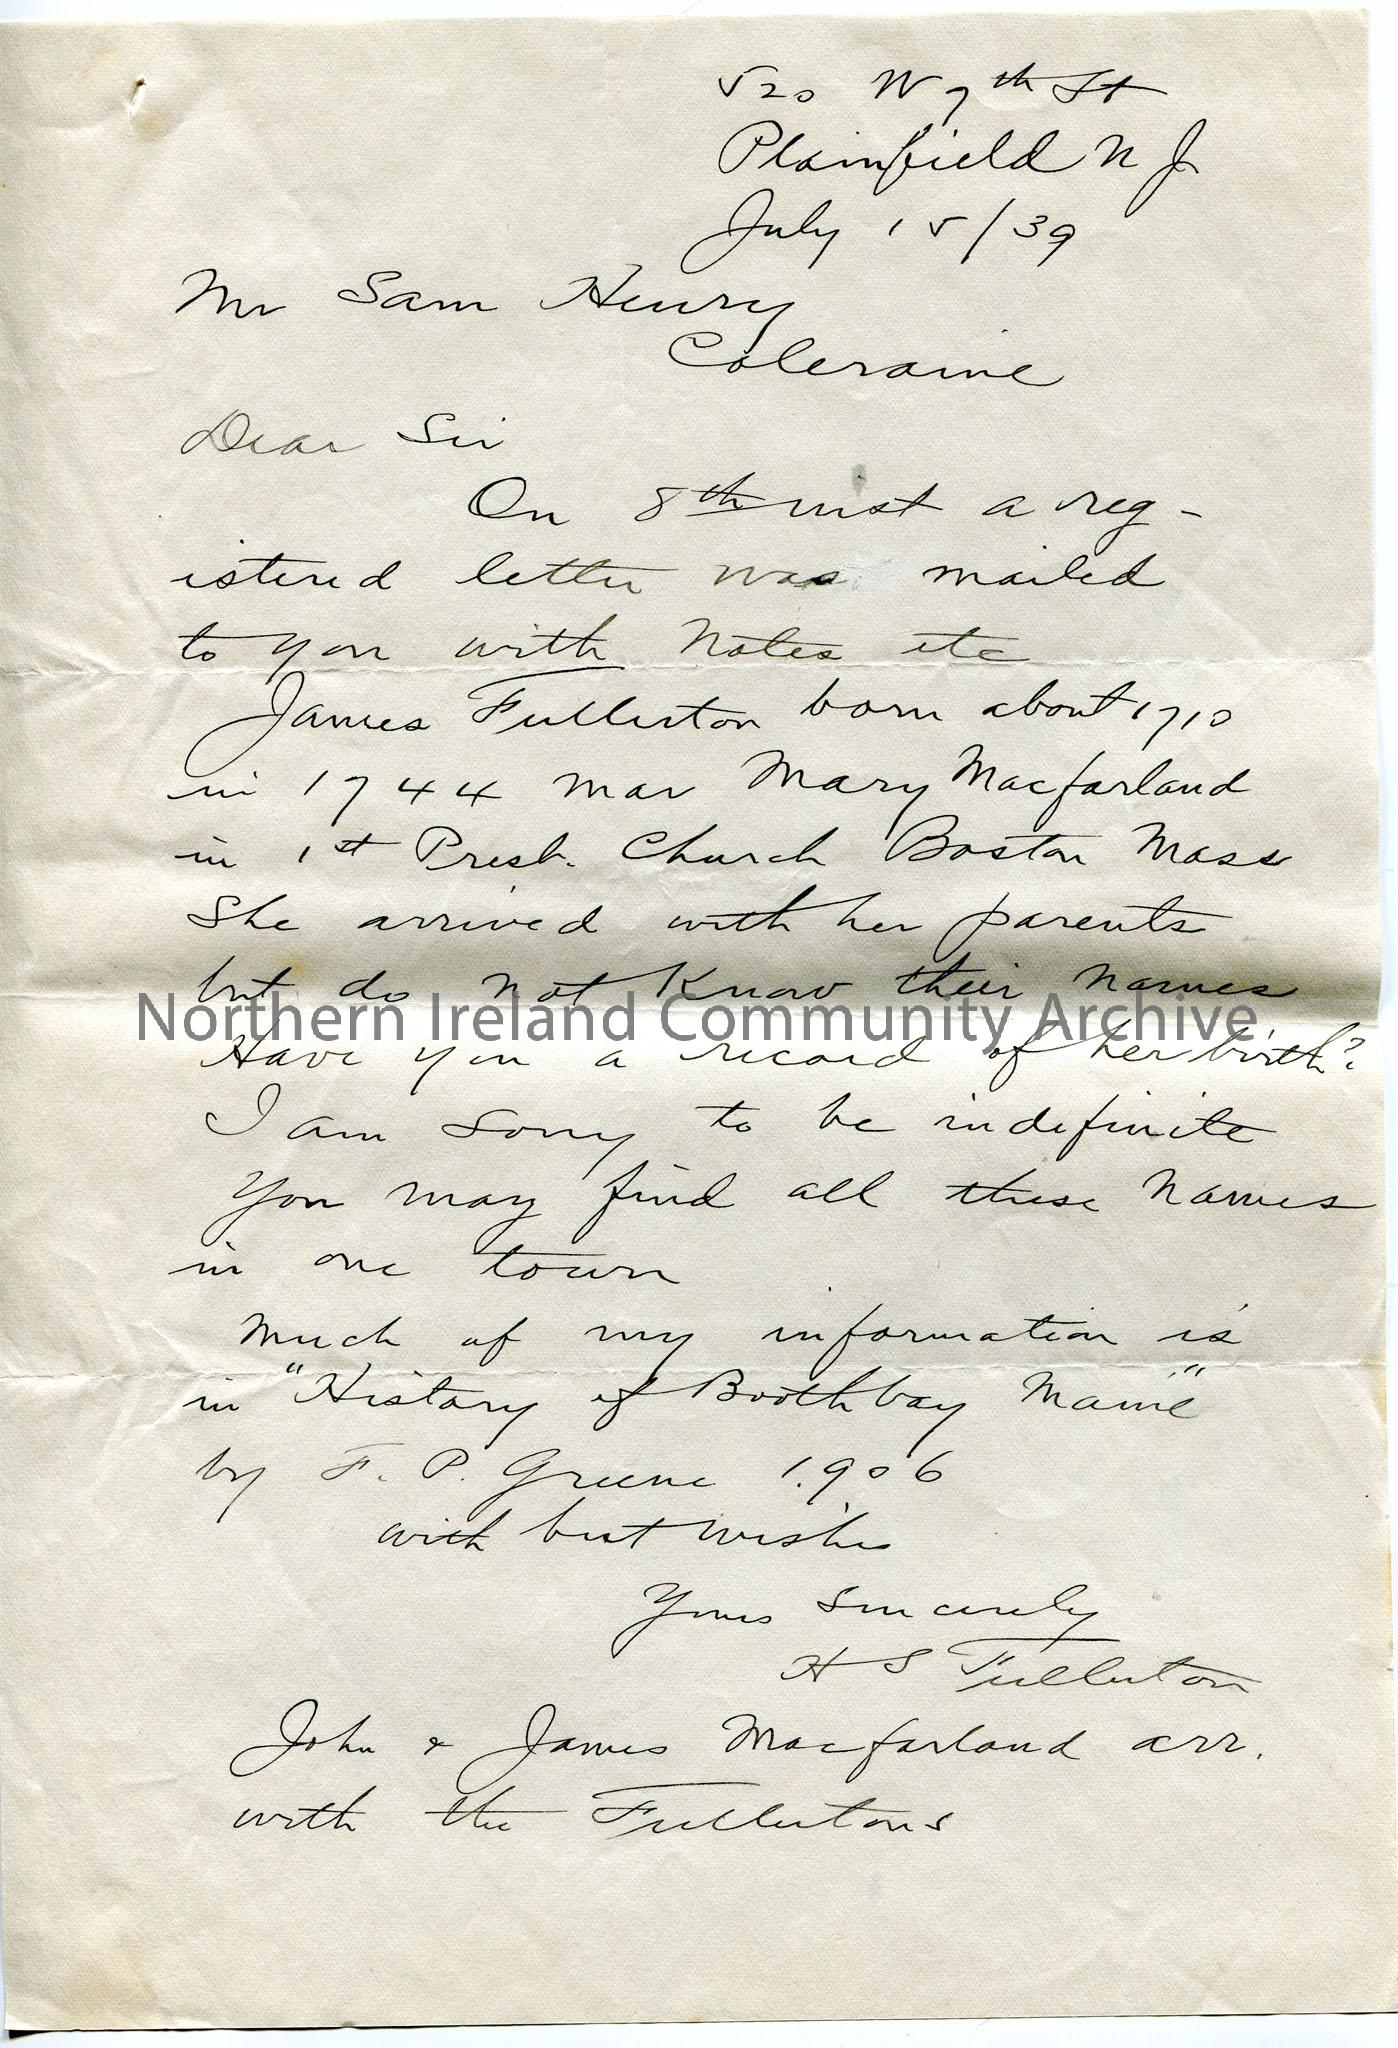 520 W 7th St
Plainfield N J.
July 15/39
Mr Sam Henry
Coleraine
Dear Sir
On 8th inst a reg-
istered letter was mailed
to you with Notes etc
James Fullerton born about 1710
in 1744 mar Mary Macfarland
in 1st Presb. Church Boston Mass
She arrived with her parents
but do not know their names
Northern Ireland Community Archive
Have you a record of her birth?
I am sorry to be indefinite
You may find all these names
in one town
Much of my information is
in "History of Boothbay Maine"
by F. P. Greene 1906
with best wishes
Yours Sincerely
H S Fullerton
John & James Macfarland arr.
with the Fullertons